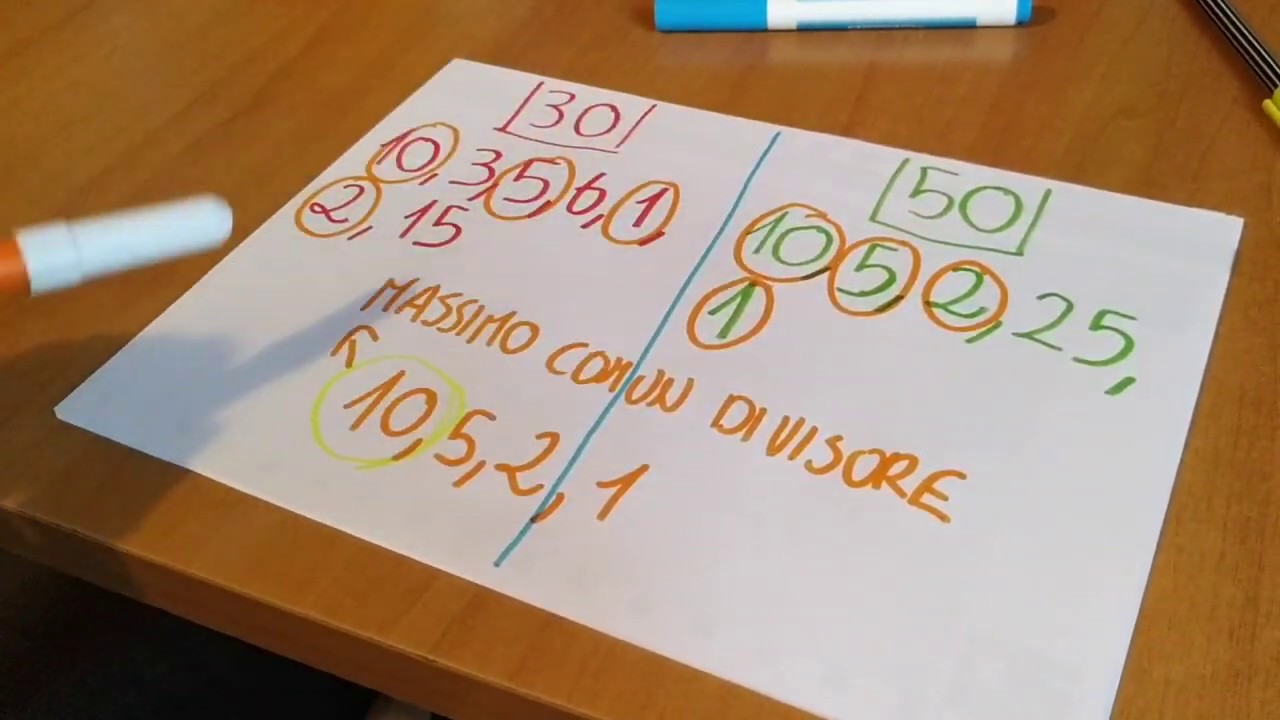 30
10, 3, 5, 6, 1,
2, 15
50
10 5 2, 25,
1
MASSIMO COMUN DIVISORE
10, 5, 2, 1